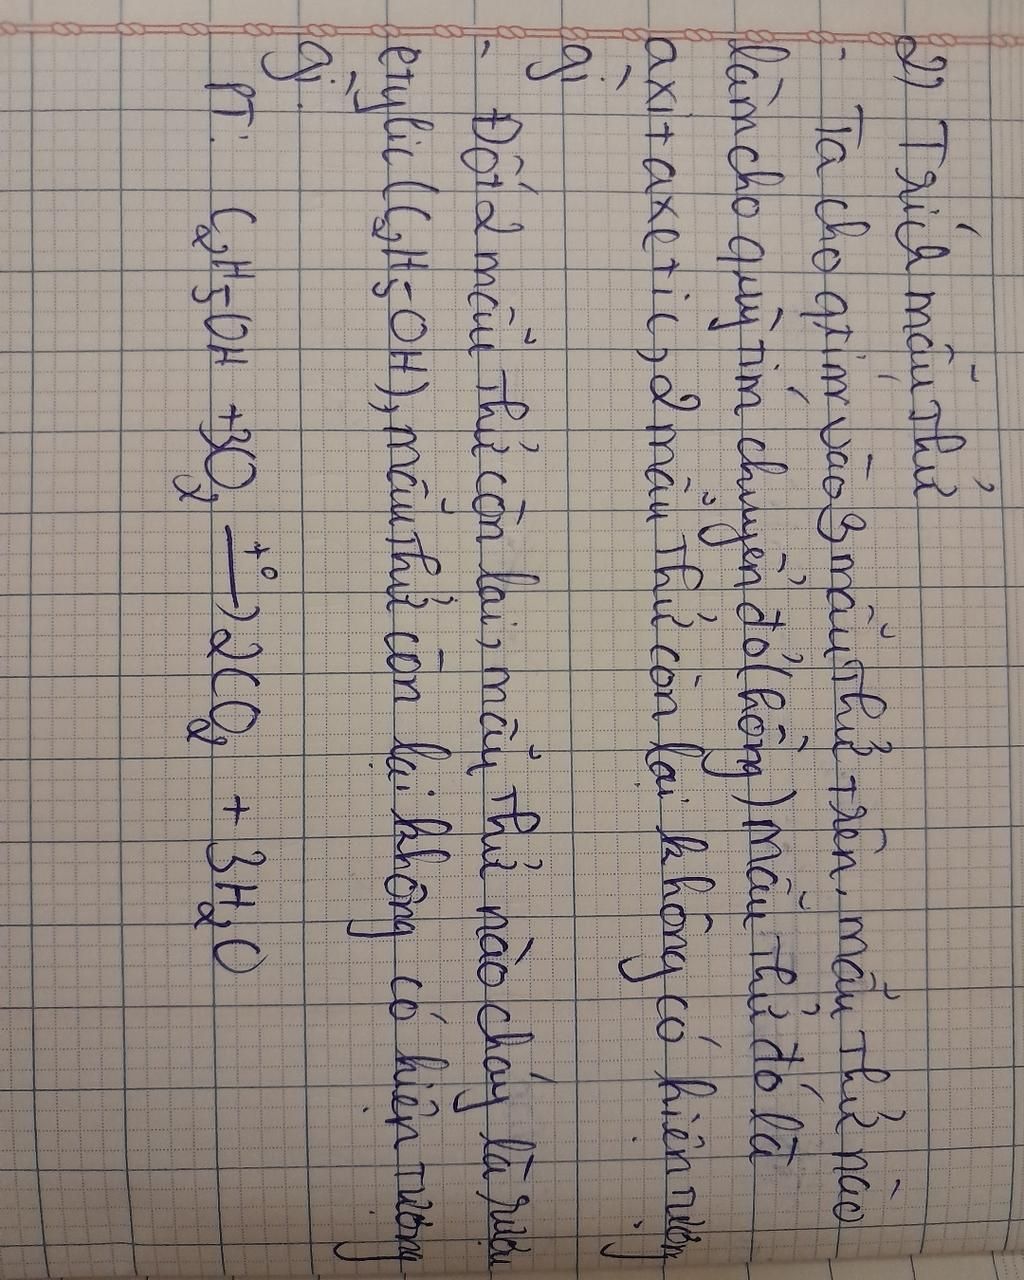 2) Trích mẫu thử
- Ta cho qtím vào 3 mẫu thử trên, mẫu thử nào
làm cho quỳ tím chuyển đỏ (hồng) mẫu thử đó là
axit axetic, 2 mẫu thử còn lại không có hiện tượng
gì
- Đốt 2 mẫu thử còn lại, mẫu thử nào cháy là rượu
etylic (C₂H₅-OH), mẫu thử còn lại không có hiện tượng
gì.
PT: C₂H₅-OH + 3O₂ —t°→ 2CO₂ + 3H₂O